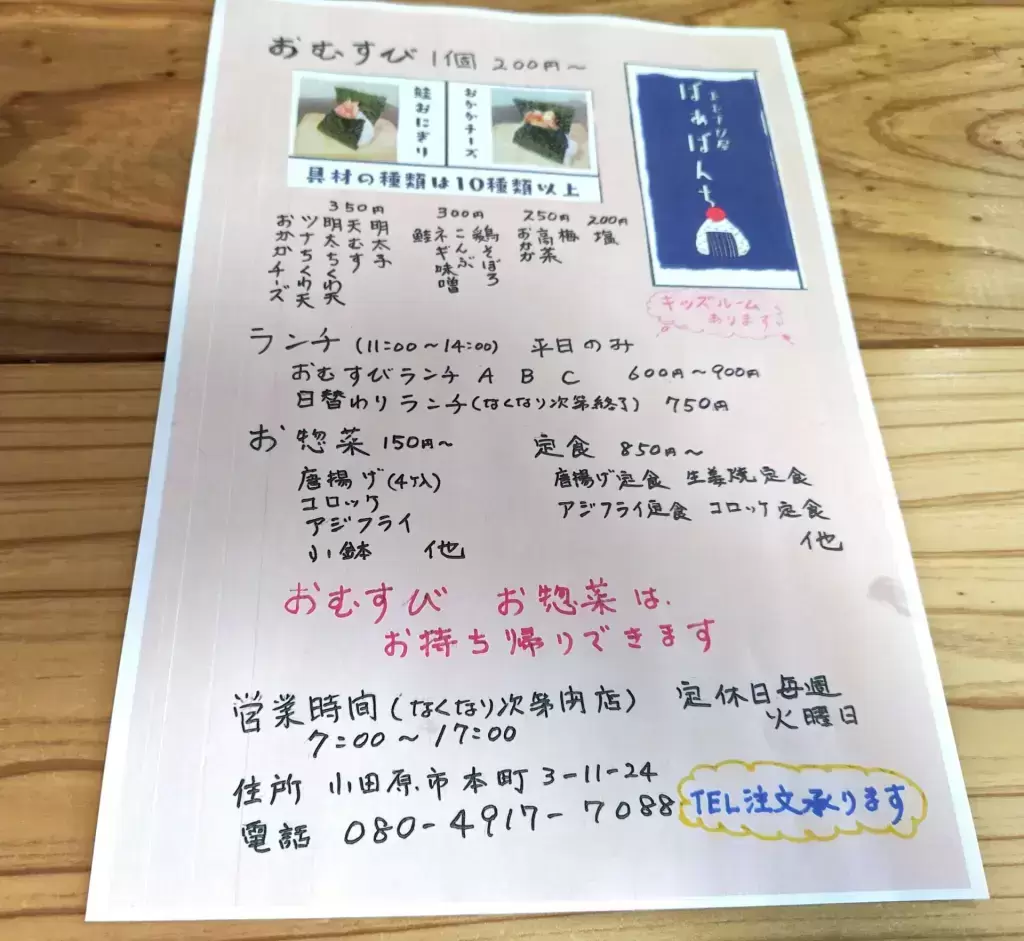 おむすび 1個 200円～
鮭おにぎり
おかかチーズ
具材の種類は10種類以上
おむすび屋
ばぁばんち
キッズルーム
あります
350円
明太子
天むす
明太ちくわ天
ツナちくわ天
おかかチーズ
300円
鶏そぼろ
こんぶ
ネギ味噌
鮭
250円
梅
高菜
おかか
200円
塩
ランチ (11:00～14:00) 平日のみ
おむすびランチ A B C 600円～900円
日替わりランチ(なくなり次第終了) 750円
お惣菜 150円～
唐揚げ(4ヶ入)
コロッケ
アジフライ
小鉢 他
定食 850円～
唐揚げ定食 生姜焼定食
アジフライ定食 コロッケ定食
他
おむすび お惣菜は
お持ち帰りできます
営業時間(なくなり次第閉店) 定休日毎週
火曜日
7:00～17:00
住所 小田原市本町3-11-24
電話 080-4917-7088
TEL注文承ります